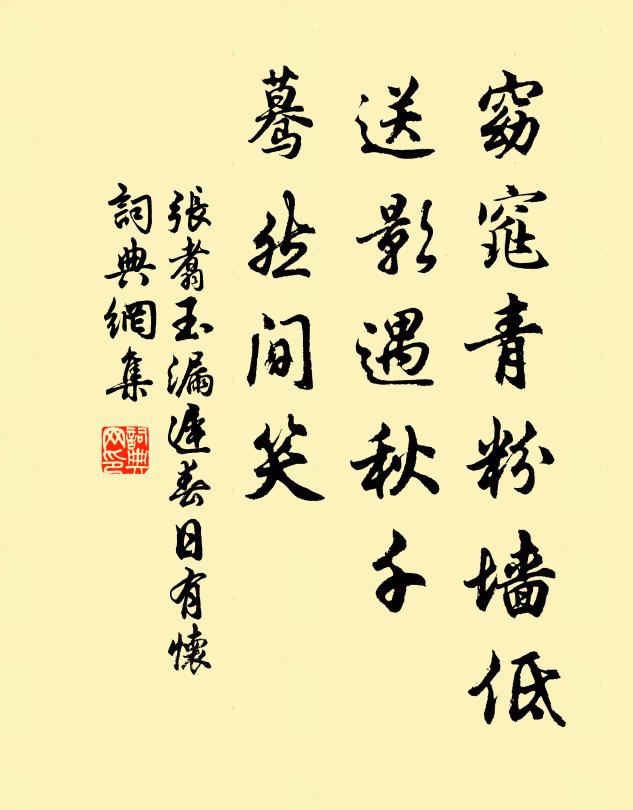 窈窕青粉墙低
送影遇秋千
驀然間笑
張翥玉漏遲春日有懷
詞典網集
詞典网印